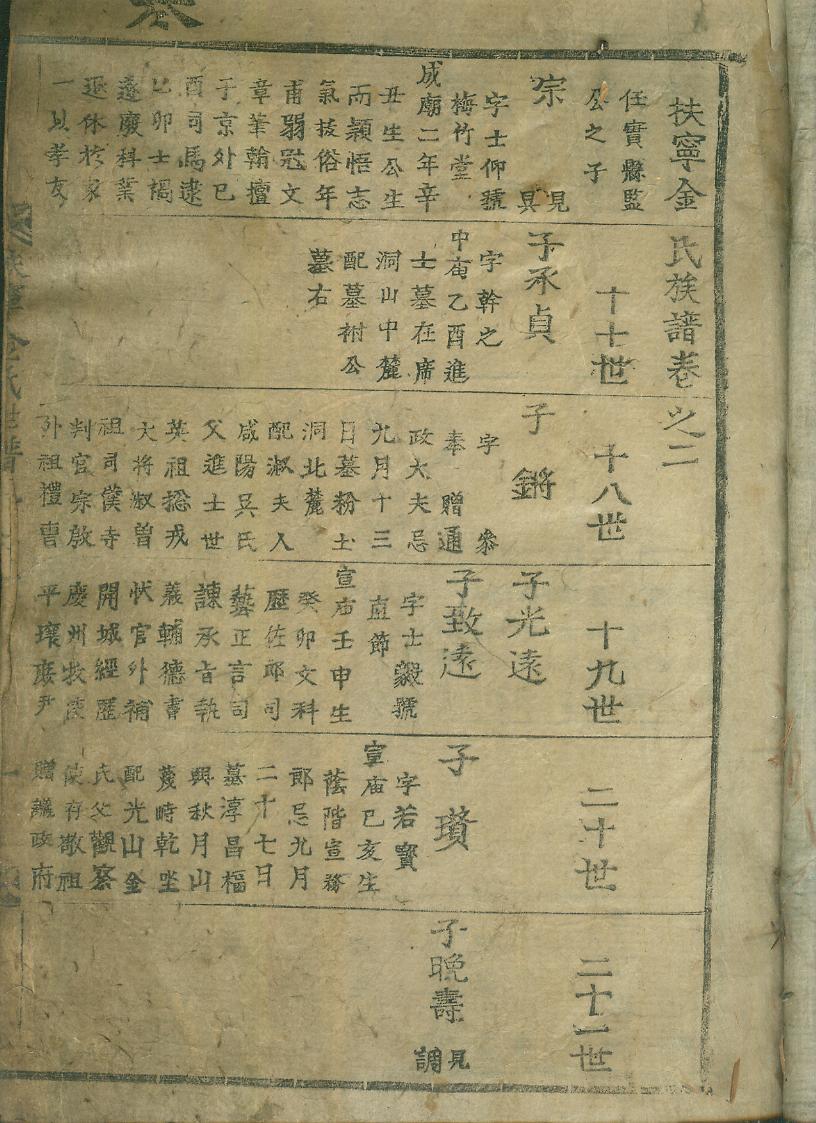 扶寧金氏族譜卷之二
任實縣監
公之子
宗
見
具
字士仰號
梅竹堂
成廟二年辛
丑生公生
而穎悟志
氣拔俗年
甫弱冠文
章筆翰擅
于京外巳
酉司馬逮
己卯士禍
遂廢科業
退休於家
一以孝友
十七世
子承貞
字幹之
中庙乙酉進
士墓在席
洞山中麓
配墓祔公
墓右
十八世
子鏘
字
奉贈通
政大夫忌
九月十三
日墓粉土
洞北麓
配淑夫人
咸陽吳氏
父進士世
英祖捴戎
大将淑曽
祖司僕寺
判官宗啟
外祖禮曺
十九世
子光遠
子致遠
字士毅號
直節
宣庙壬申生
癸卯文科
歷佐郎司
藝正言司
諫承旨執
義輔德書
状官外補
開城經歷
慶州牧使
平壤庶尹
二十世
子瓚
字若寶
宣庙己亥生
蔭階宣務
郎忌九月
二十七日
墓淳昌福
興秋月山
茂時乾坐
配光山金
氏父觀察
使存敬祖
贈議政府
二十一世
子晚壽
見
調